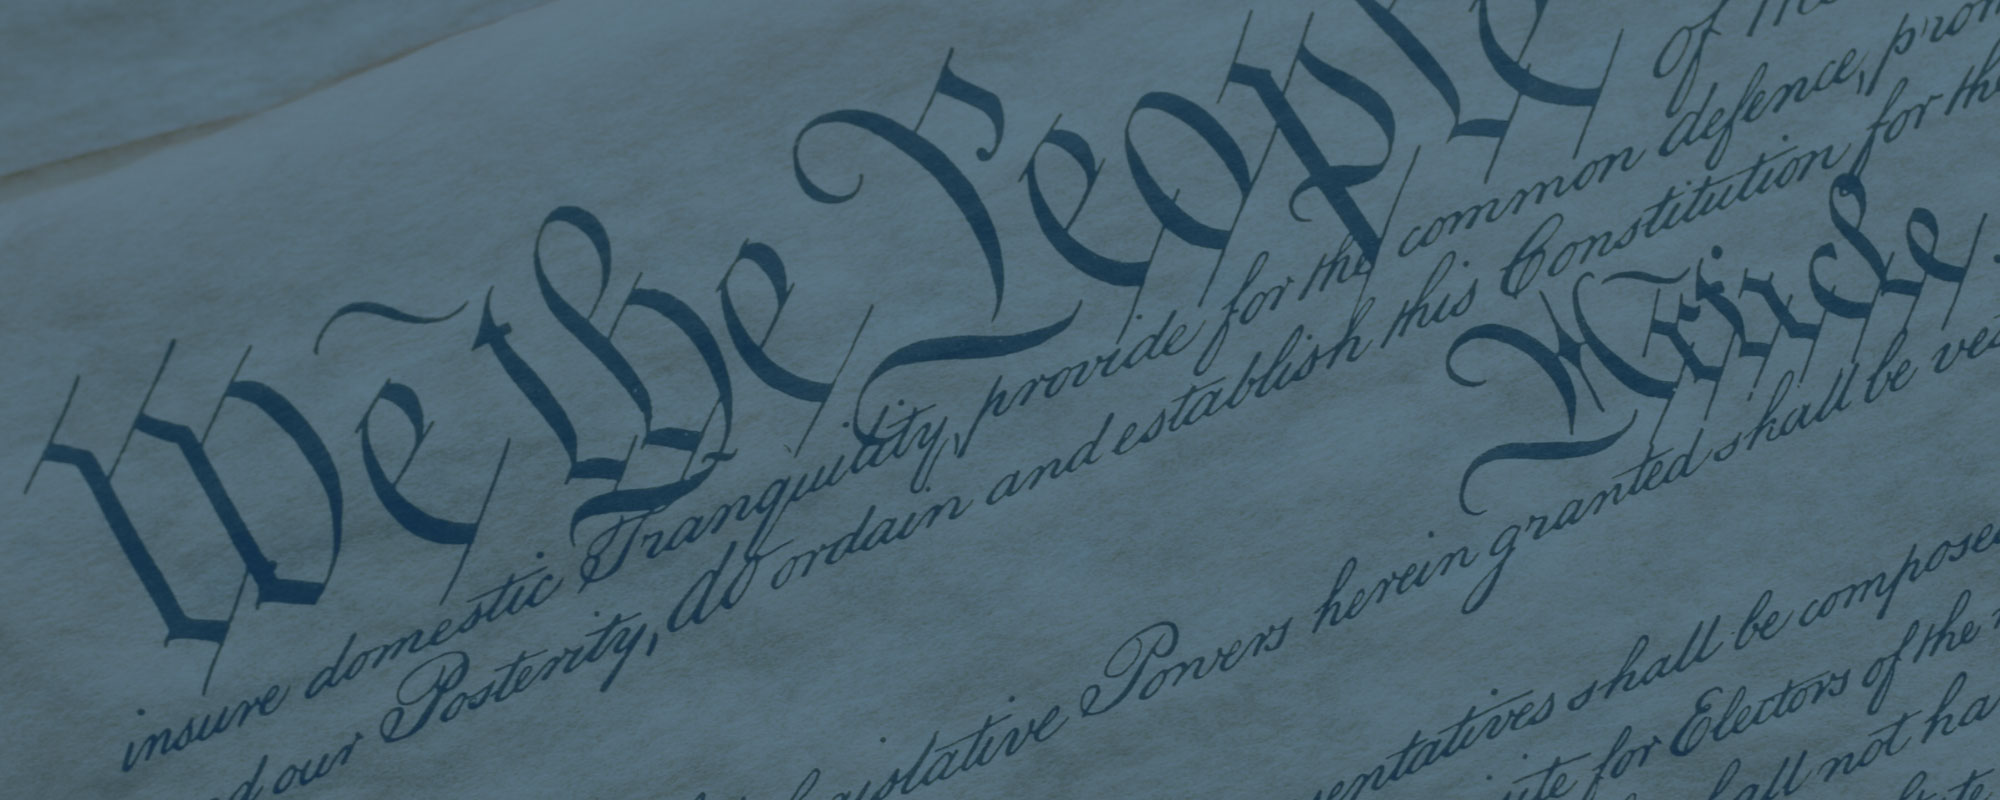 We the People of the
insure domestic Tranquility, provide for the common defence,
our Posterity, do ordain and establish this Constitution for the
Article.
Powers herein granted shall be
shall be
for Electors of the
not